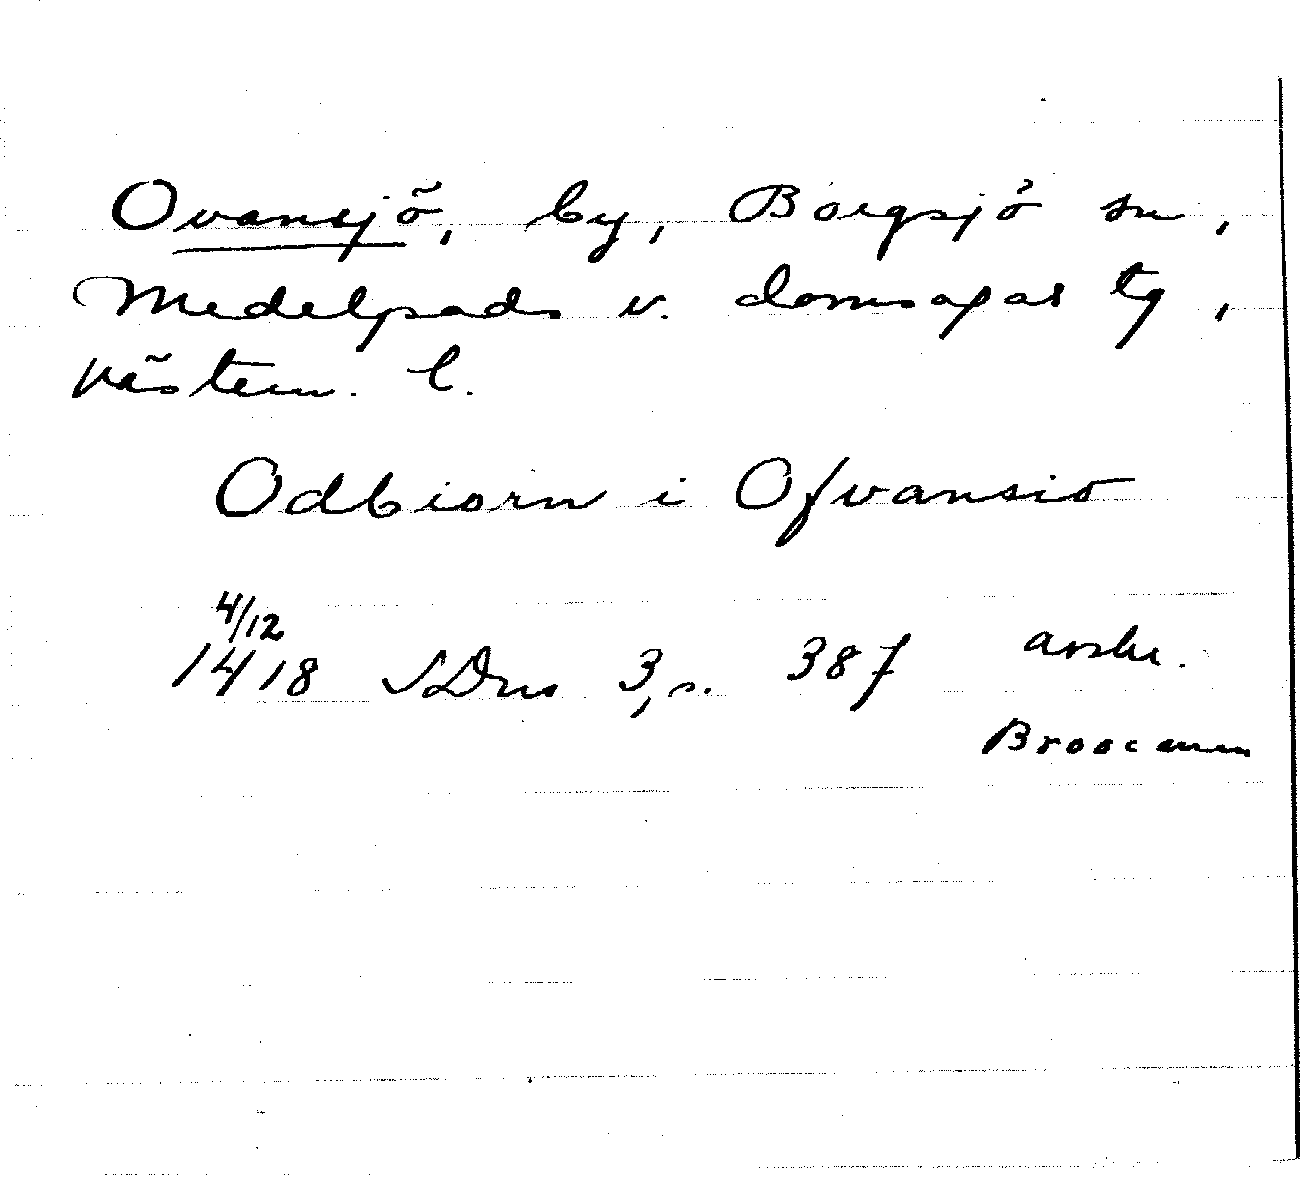 Ovansjö, by, Borgsjö sn,
Medelpads v. domsagas tg,
Västern. l.
Odbiorn i Ofvansio
4/12
1418 SDns 3, s. 387 avskr.
Broocman